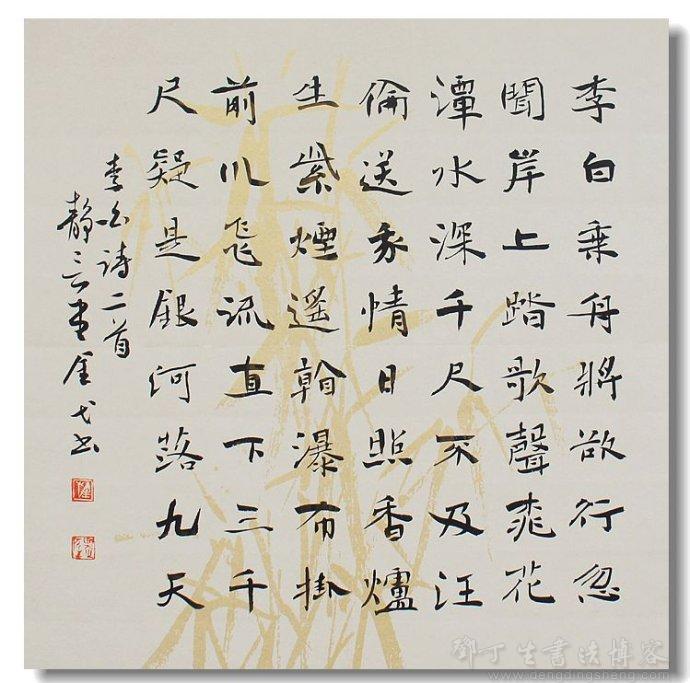 李白乘舟將欲行忽
聞岸上踏歌聲桃花
潭水深千尺不及汪
倫送我情日照香爐
生紫煙遙看瀑布掛
前川飛流直下三千
尺疑是銀河落九天
李白詩二首
鄧丁生書法博客
www.dengdingsheng.com